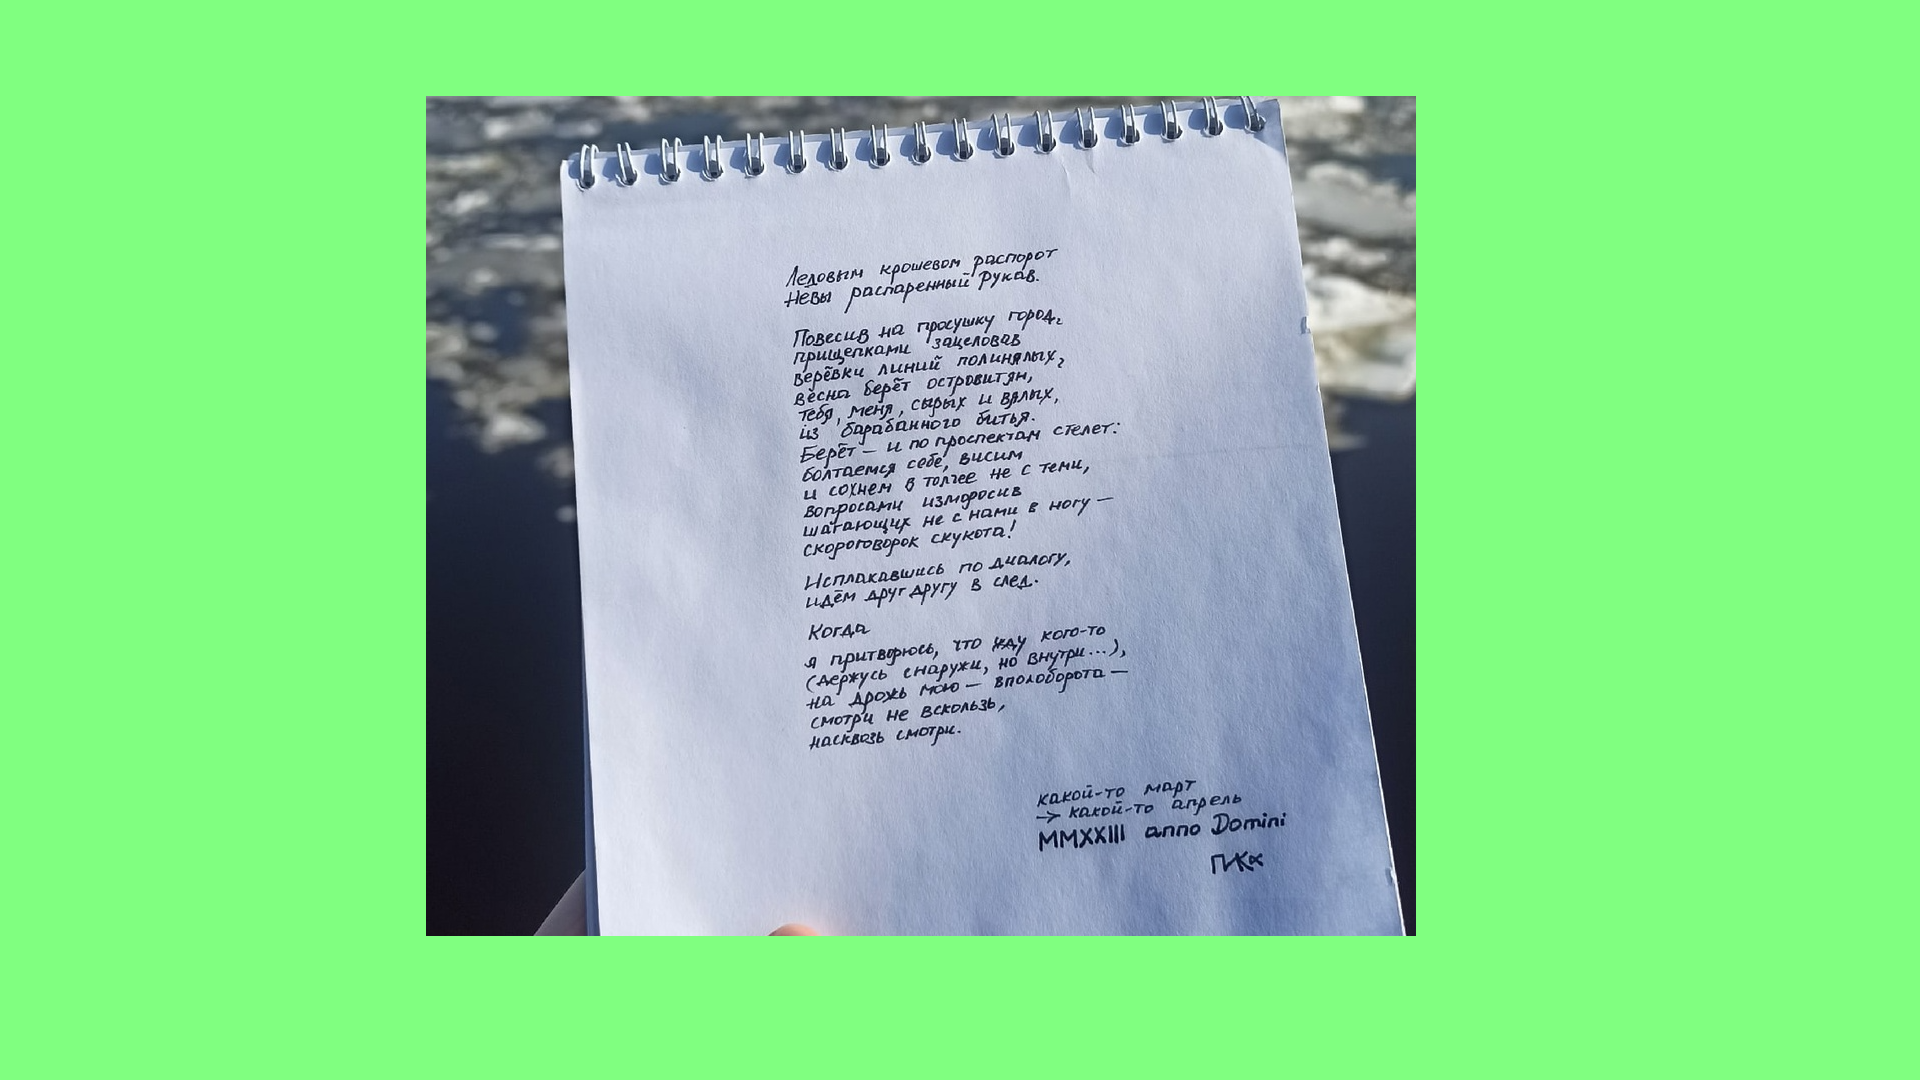 Ледовым крошевом распорот
Невы распаренный рукав.
Повесив на просушку город,
прищепками зацеловав
верёвки линий полинялых,
весна берёт островитян,
тебя, меня, сырых и вялых,
из барабанного битья.
Берёт – и по проспектам стелет:
болтаемся себе, висим
и сохнем в толчее не с теми,
вопросами изморосив
шагающих не с нами в ногу –
скороговорок скукота!
Исплакавшись по диалогу,
идём друг другу в след.
Когда
я притворюсь, что жду кого-то
(держусь снаружи, но внутри...),
на дрожь мою – вполоборота –
смотри не вскользь,
насквозь смотри.
какой-то март
→ какой-то апрель
MMXXIII anno Domini